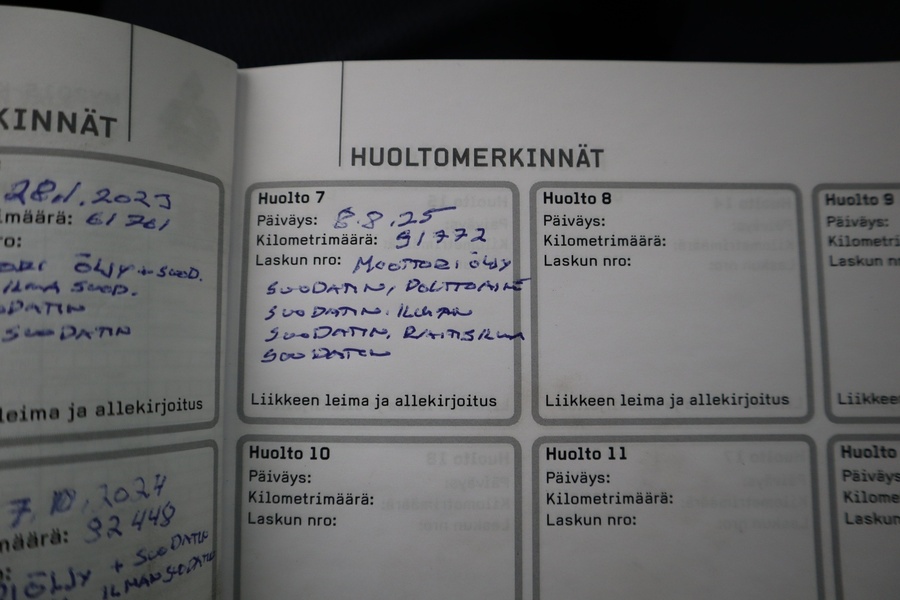 KINNÄT
28.1.2023
imäärä: 61761
ro:
ORI ÖLJY + SUOD.
ILMA SUOD.
ODATIN
SUODATIN
leima ja allekirjoitus
7.10.2024
määrä: 92448
ÖLJY + SUODATIN
ILMANSUODATIN
HUOLTOMERKINNÄT
Huolto 7
Päiväys: 8.8.25
Kilometrimäärä: 91772
Laskun nro: MOOTTORIÖLJY
SUODATIN, POLTTOAINE
SUODATIN. ILMAN
SUODATIN. RAITISILMA
SUODATIN
Liikkeen leima ja allekirjoitus
Huolto 8
Päiväys:
Kilometrimäärä:
Laskun nro:
Liikkeen leima ja allekirjoitus
Huolto 9
Päiväys:
Kilometri
Laskun n
Liikkee
Huolto 10
Päiväys:
Kilometrimäärä:
Laskun nro:
Huolto 11
Päiväys:
Kilometrimäärä:
Laskun nro:
Huolto
Päiväys
Kilome
Laskun